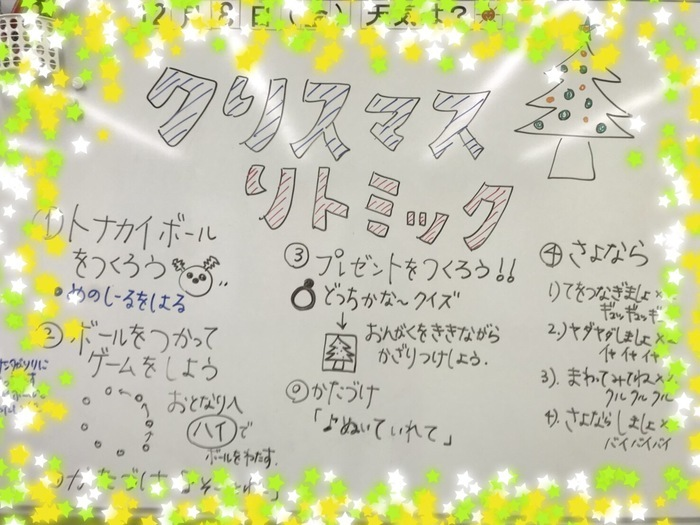 12月8日( )天気は?
クリスマス
リトミック
① トナカイボール
をつくろう
・めのしーるをはる
② ボールをつかって
ゲームをしよう
おとなりへ
ハイで
ボールをわたす.
③ プレゼントをつくろう!!
どっちかな~クイズ
おんがくをききながら
かざりつけしよう.
かたづけ
「♪ぬいていれて」
④ さよなら
1) てをつなぎましょ
ギュッギュッギュ
2.) ヤダヤダしましょ
イヤイヤイヤ
3). まわってみてね
クルクルクル
4). さよならしましょ
バイバイバイ